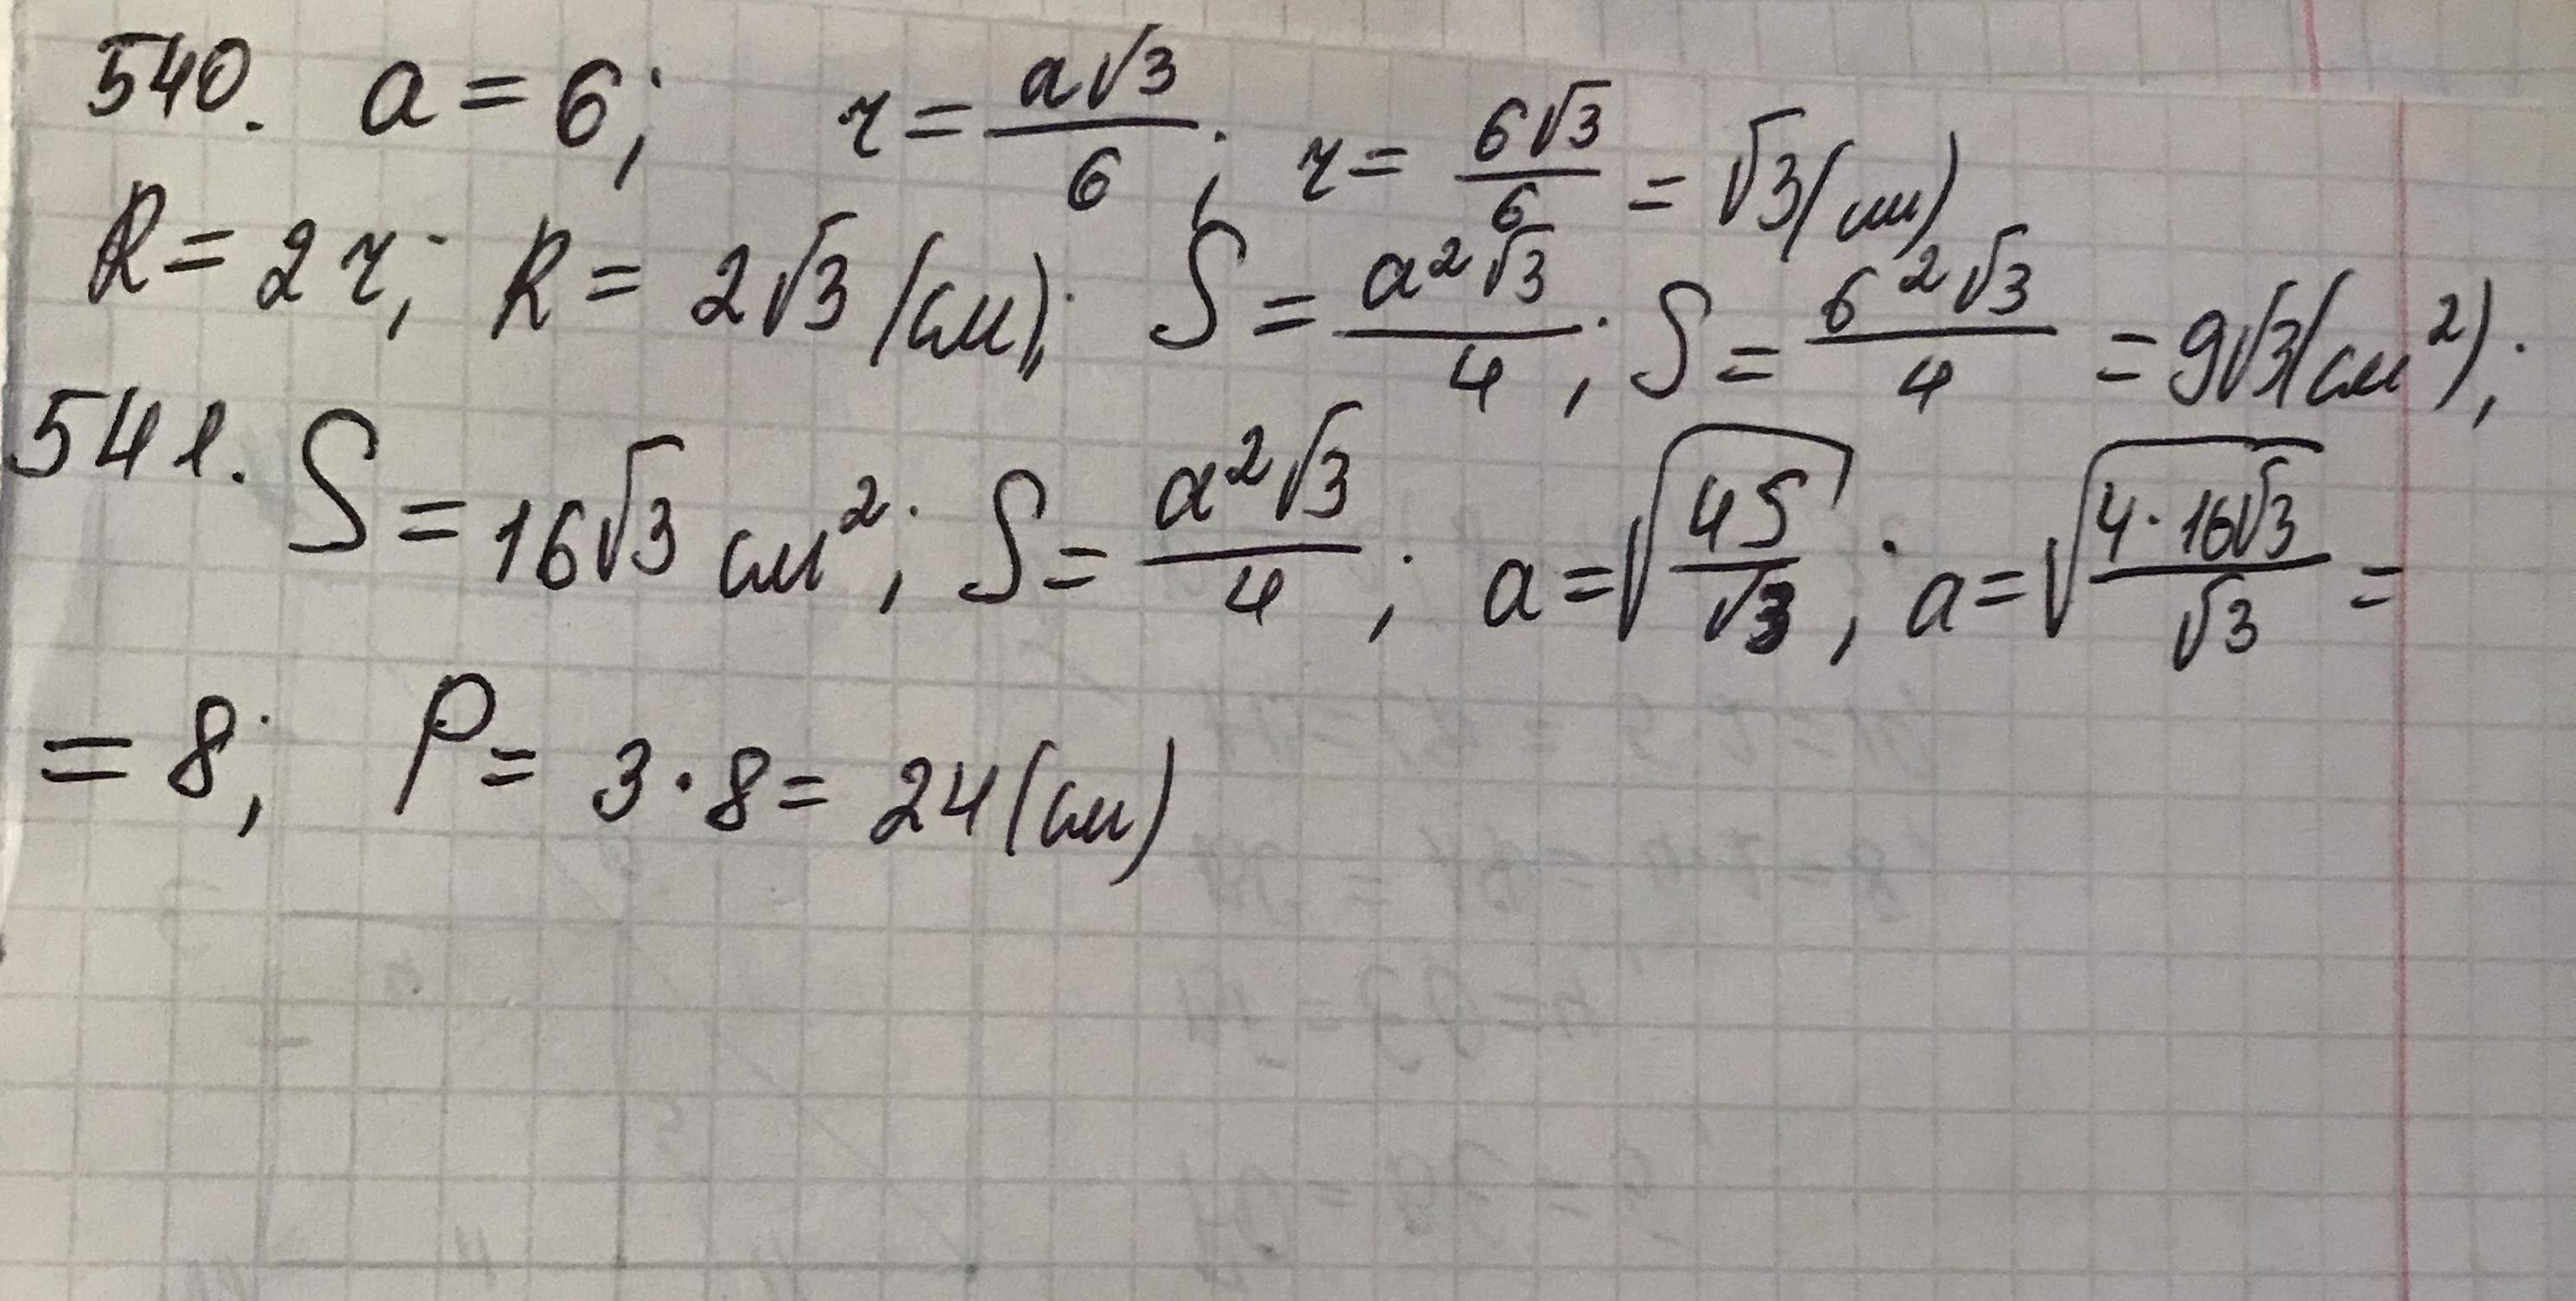 540. a = 6; r = a√3/6; r = 6√3/6 = √3(см)
R = 2r; R = 2√3 (см); S = a²√3/4; S = 6²√3/4 = 9√3(см²);
541. S = 16√3 см²; S = a²√3/4; a = √(4S/√3); a = √(4·16√3/√3) =
= 8; P = 3·8 = 24(см)